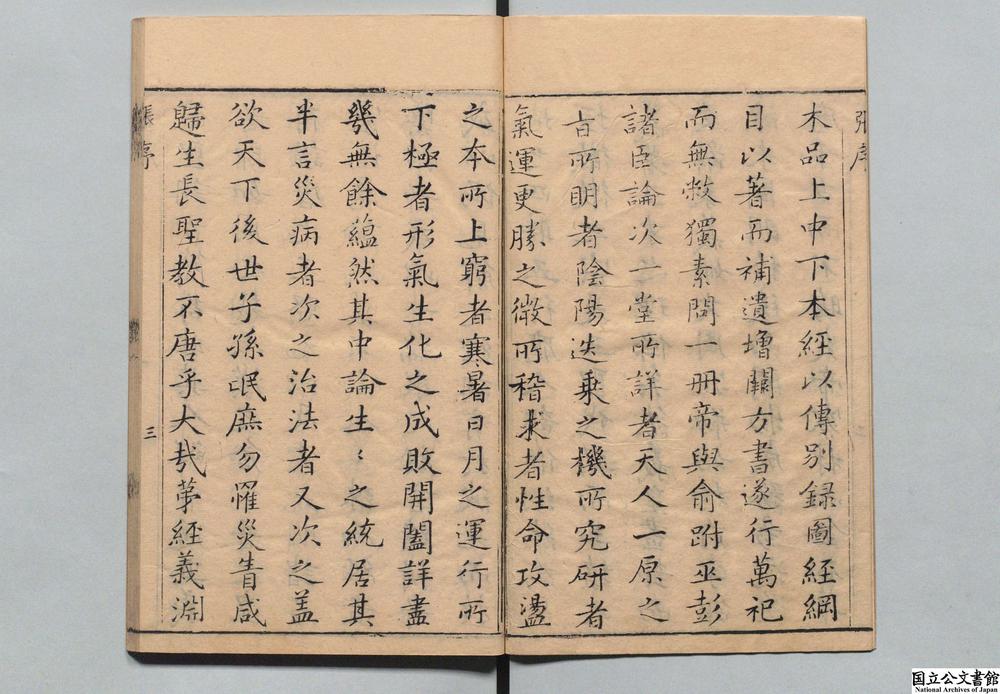 張序
木品上中下本經以傳別録圖經綱
目以著而補遺增闢方書遂行萬祀
而無敝獨素問一冊帝與俞跗巫彭
諸臣論次一堂所詳者天人一原之
旨所明者陰陽迭乗之機所究研者
氣運更勝之微所稽求者性命攻盪
之本所上窮者寒暑日月之運行所
下極者形氣生化之成敗開闔詳盡
幾無餘蘊然其中論生〻之統居其
半言災病者次之治法者又次之盖
欲天下後世子孫氓庶勿罹災眚咸
歸生長聖教不唐乎大哉第經義淵
張序
三
国立公文書館
National Archives of Japan